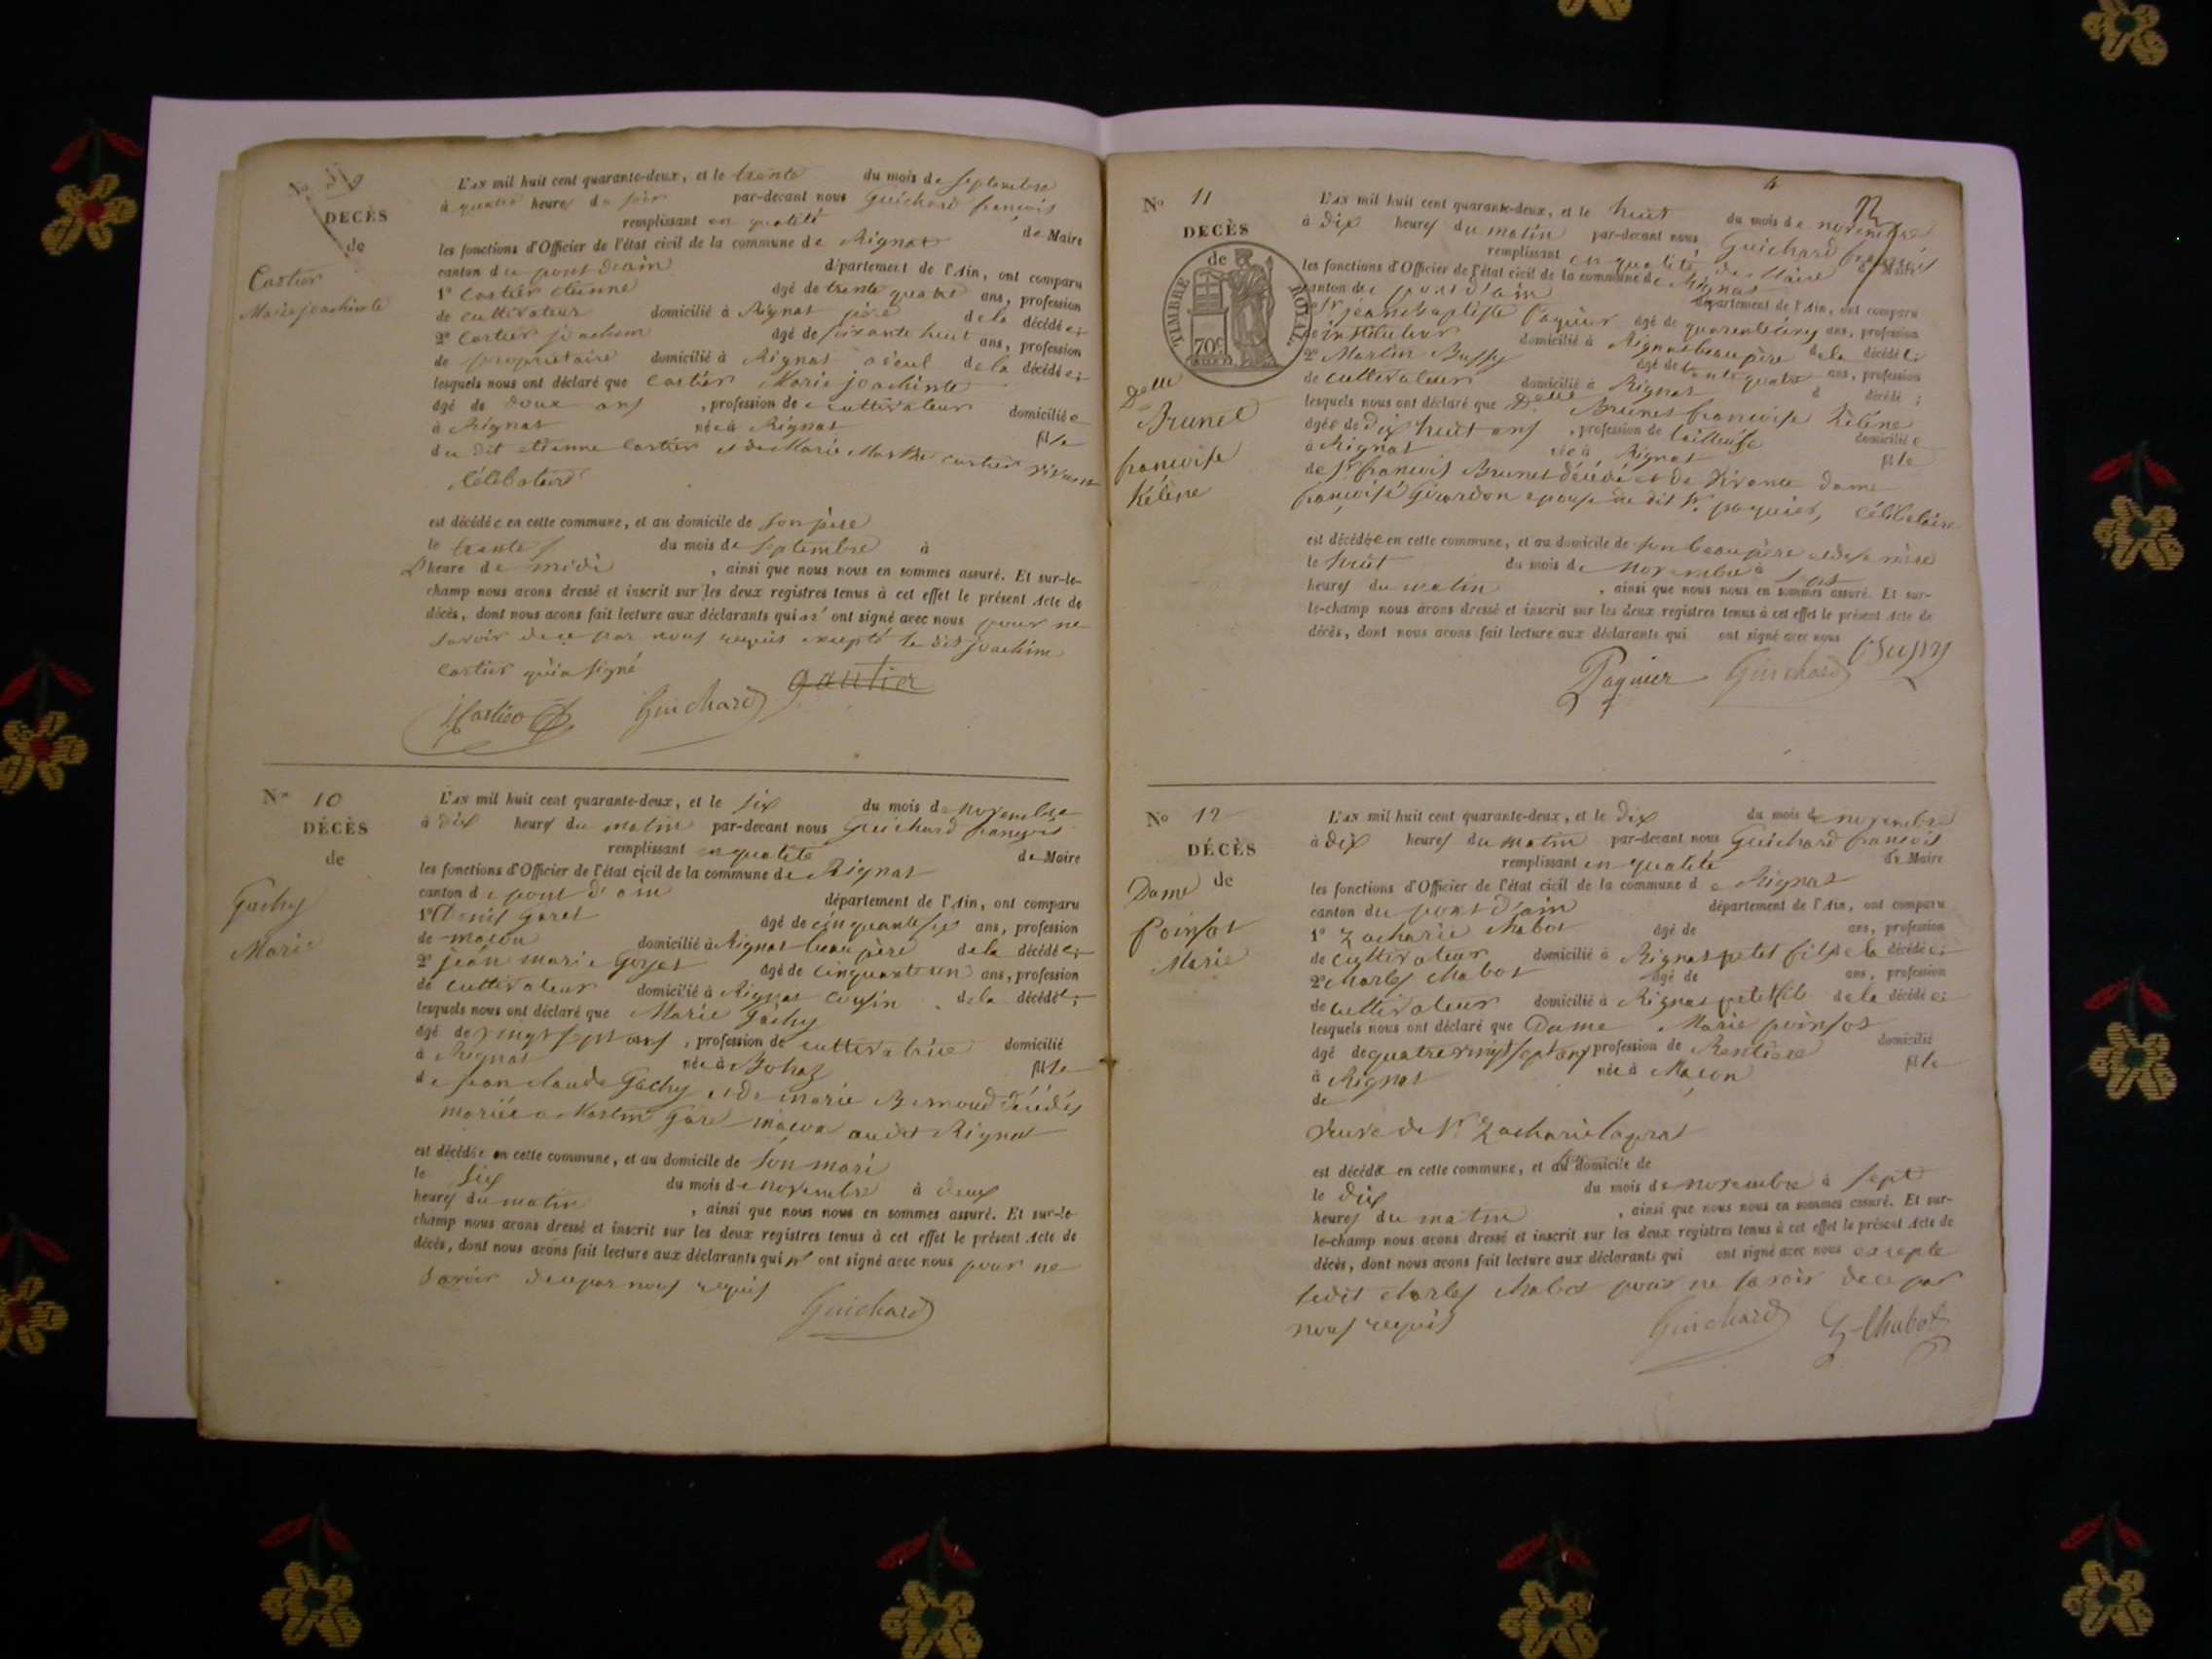 No 9
DECÈS
de
Cartier
Marie joachinte
L'AN mil huit cent quarante-deux, et le trente du mois de septembre
à quatre heures du soir par-devant nous Guichard francois
remplissant en qualité de Maire
les fonctions d'Officier de l'état civil de la commune de Rignat
canton du pont d'ain département de l'Ain, ont comparu
1° Cartier etienne âgé de trente quatre ans, profession
de cultivateur domicilié à Rignat père de la décédée;
2° Cartier joachim âgé de soixante huit ans, profession
de propriétaire domicilié à Rignat aïeul de la décédée;
lesquels nous ont déclaré que Cartier Marie joachinte
âgé de deux ans , profession de cultivateur domiciliée
à Rignat née à Rignat fille
du dit etienne Cartier et de Marie Marthe Cartier vivans
Célibataire
est décédée en cette commune, et au domicile de son père
le trente du mois de septembre à
heure de midi , ainsi que nous nous en sommes assuré. Et sur-le-
champ nous avons dressé et inscrit sur les deux registres tenus à cet effet le présent Acte de
décès, dont nous avons fait lecture aux déclarants qui n' ont signé avec nous pour ne
savoir de ce par nous requis excepté le dit joachim
Cartier qui a signé
J Cartier Guichard gautier
N° 10
DÉCÈS
de
Gachy
Marie
L'AN mil huit cent quarante-deux, et le six du mois de novembre
à dix heures du matin par-devant nous Guichard françois
remplissant en qualité de Maire
les fonctions d'Officier de l'état civil de la commune de Rignat
canton de pont d'ain département de l'Ain, ont comparu
1° Denis Garel âgé de cinquante six ans, profession
de maçon domicilié à Rignat beau père de la décédée;
2° jean marie Goyet âgé de cinquante un ans, profession
de cultivateur domicilié à Rignat cousin de la décédée;
lesquels nous ont déclaré que Marie Gachy
âgé de vingt sept ans , profession de cultivatrice domicilié
à Rignat née à Bohas fille
de jean claude Gachy et de marie Bernoud décédés
mariée a Martin Garel maçon audit Rignat
est décédée en cette commune, et au domicile de son mari
le six du mois de novembre à deux
heures du matin , ainsi que nous nous en sommes assuré. Et sur-le
champ nous avons dressé et inscrit sur les deux registres tenus à cet effet le présent Acte de
décès, dont nous avons fait lecture aux déclarants qui n' ont signé avec nous pour ne
savoir de ce par nous requis
Guichard
N° 11
DECÈS
de
TIMBRE ROYAL
70c
Delle
Brunet
francoise
hélène
L'AN mil huit cent quarante-deux, et le huit du mois de novembre
à dix heures du matin par-devant nous Guichard françois
remplissant en qualité de Maire de Maire
les fonctions d'Officier de l'état civil de la commune de Rignat
canton du pont d'ain département de l'Ain, ont comparu
1° Sr jean baptiste Paquier âgé de quarante cinq ans, profession
de instituteur domicilié à Rignat beau père de la décédée;
2° Martin Bussy âgé de trente quatre ans, profession
de cultivateur domicilié à Rignat d décédé ;
lesquels nous ont déclaré que Delle Brunet francoise hélène
âgée de dix huit ans , profession de tailleuse domiciliée
à Rignat née à Rignat fille
de Sr francois Brunet décédé et de vivante dame
françoise Girardon epouse du dit Sr paquier, célibataire
est décédée en cette commune, et au domicile de son beau père et de sa mère
le huit du mois de novembre à
heures du matin , ainsi que nous nous en sommes assuré. Et sur-
le-champ nous avons dressé et inscrit sur les deux registres tenus à cet effet le présent Acte de
décès, dont nous avons fait lecture aux déclarants qui ont signé avec nous
Paquier Guichard Bussy
N° 12
DÉCÈS
de
Dame
Poinsot
Marie
L'AN mil huit cent quarante-deux, et le dix du mois de novembre
à dix heures du matin par-devant nous Guichard francois
remplissant en qualité de Maire
les fonctions d'Officier de l'état civil de la commune de Rignat
canton du pont d'ain département de l'Ain, ont comparu
1° Zacharie Chabot âgé de ans, profession
de cultivateur domicilié à Rignat petit fils de la décédée;
2° Charles Chabot âgé de ans, profession
de cultivateur domicilié à Rignat petit fils de la décédée;
lesquels nous ont déclaré que Dame Marie poinsot
âgé de quatre vingt sept ans profession de Rentière domicilié
à Rignat née à Macon fille
de
veuve de Sr Zacharie
est décédé en cette commune, et au domicile de
le dix du mois de novembre à sept
heures du matin , ainsi que nous nous en sommes assuré. Et sur-
le-champ nous avons dressé et inscrit sur les deux registres tenus à cet effet le présent Acte de
décès, dont nous avons fait lecture aux déclarants qui ont signé avec nous excepté
ledit Charles Chabot pour ne savoir de ce par
nous requis
Guichard Z Chabot